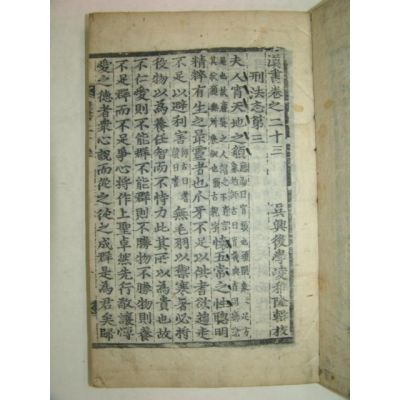 漢書卷之二十三
吳興後學凌稚隆輯校
刑法志第三
夫人宵天地之䫉
懷五常之性聰明
精粹有生之最靈者也爪牙不足以供耆欲趨走
不足以避利害無毛羽以禦寒暑必將
役物以為養任智而不恃力此其所以為貴也故
不仁愛則不能群不能群則不勝物不勝物則養
不足群而不足爭心將作上聖卓然先行敬讓博
愛之德者眾心說而從之從之成群是為君矣歸